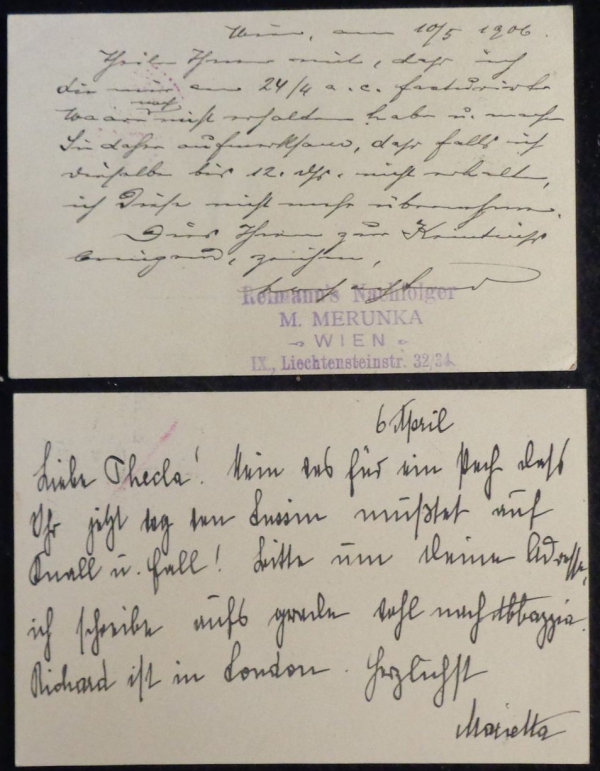 Wien, am 10/5 1906.
Theile Ihnen mit, dass ich
die mir am 24/4 a. c. facturirte
Waare noch nicht erhalten habe u. mache
Sie daher aufmerksam, dass falls ich
dieselbe bis 12. ds. nicht erhalte,
ich diese nicht mehr übernehme.
Dies Ihnen zur Kenntniss
bringend, zeichne,
Reimann's Nachfolger
M. MERUNKA
WIEN
IX., Liechtensteinstr. 32/34.
6 April
Liebe Thecla! Nein das für ein Pech dass
Ihr jetzt von Lussin mußtet auf
Knall u. Fall! Bitte um deine Adresse,
ich schreibe aufs grade wohl nach Abbazzia.
Richard ist in London. Herzlichst
Marietta